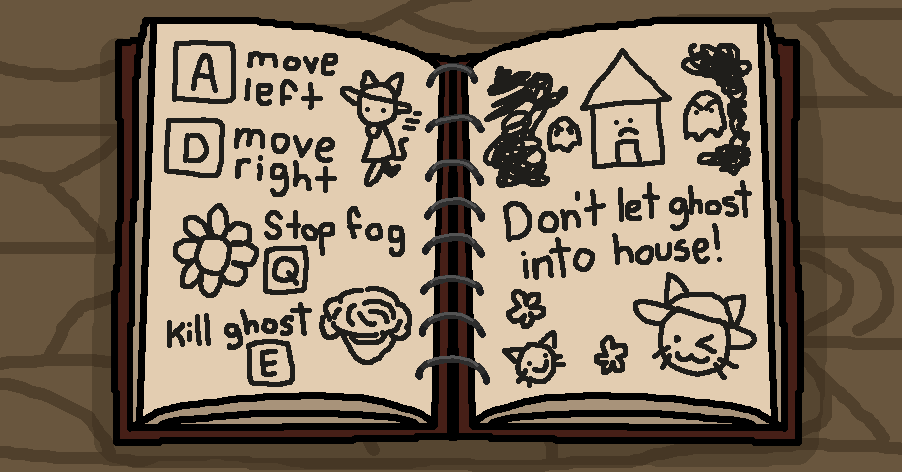 A move
left
D move
right
Stop fog
Q
kill ghost
E
Don't let ghost
into house!